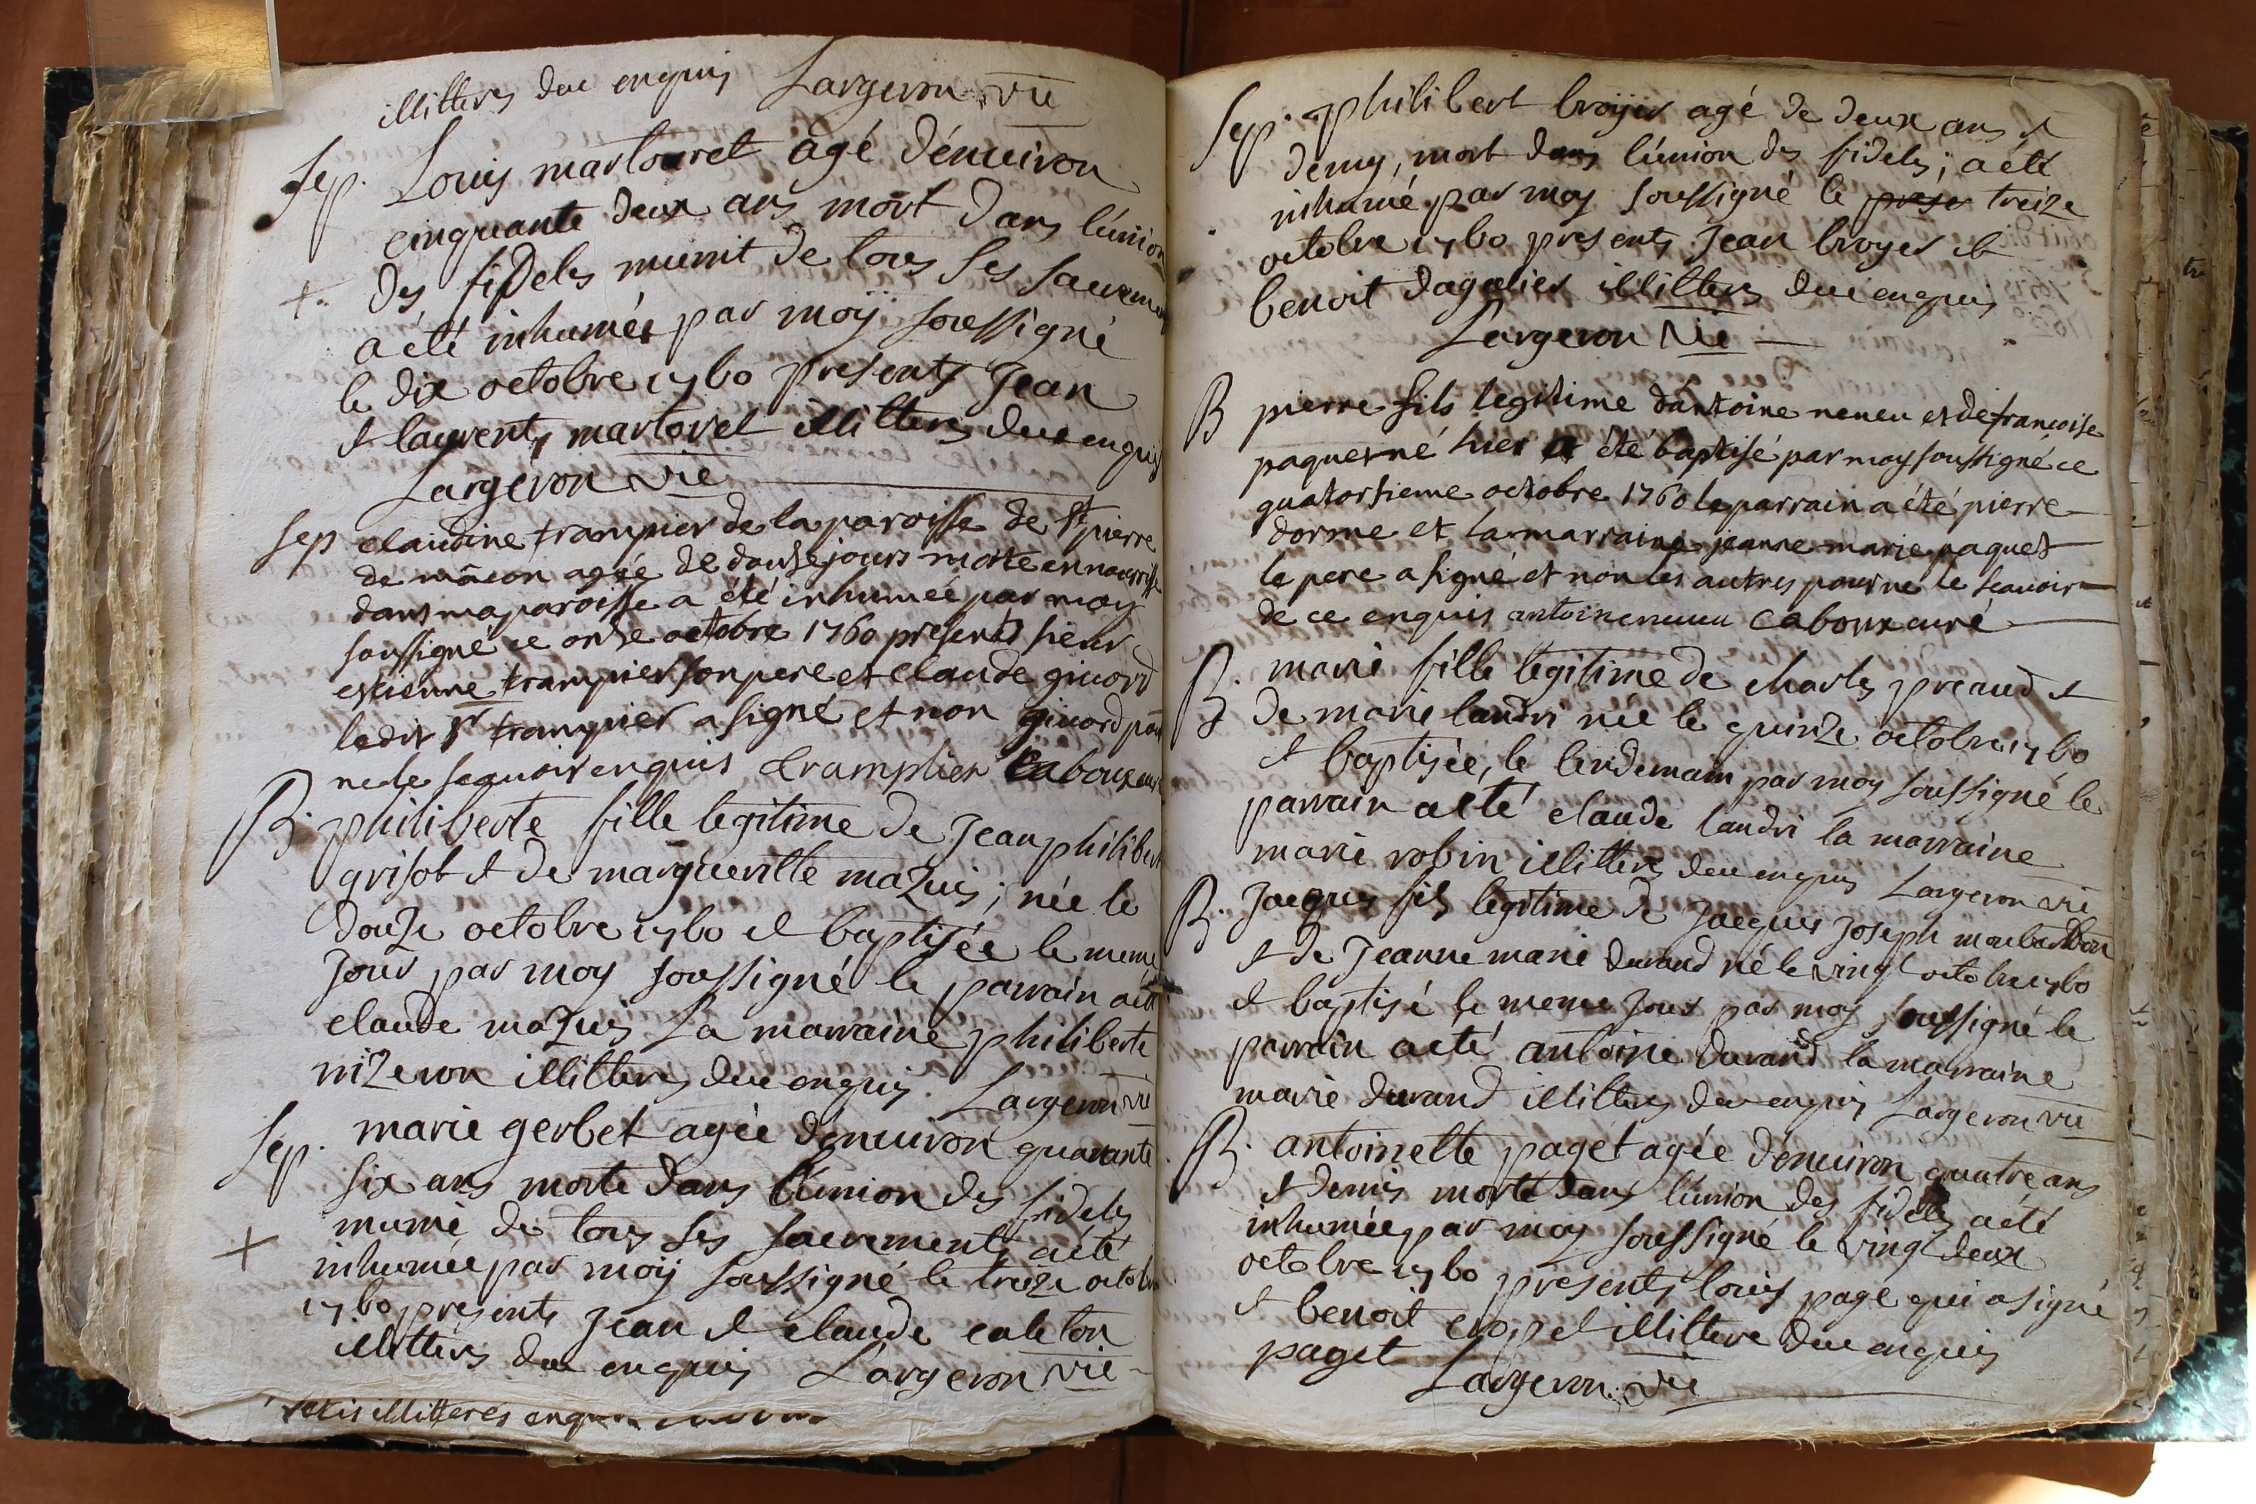 illitteres due enquis Largeron vic
Sep. Louis martouret agé d'énuiron
cinquante deux ans mort dans l'union
des fideles munit de tous ses sacremen
a été inhumée par moy soussigné
le dix octobre 1760 presents Jean
et laurent martoret illitteres due enquis
Largeron vic
Sep claudine trampier de la paroisse de St pierre
de mâcon agée de douse jours morte en nourrisse
dans ma paroisse a été inhumée par moy
soussigné ce onse octobre 1760 presents sieur
estienne trampier son pere et claude giuord
ledit Sr trampier a signé et non giuord pour
ne le sçauoir enquis Tramplier caboux curé
B. philiberte fille legitime de Jean philibert
grisot et de margueritte mazuis; née le
douze octobre 1760 et baptisée le meme
jour par moy soussigné le parrain a été
claude mazuis La marraine philiberte
nizeron illitteres due enquis. Largeron vic
Sep. marie gerbet agée d'enuiron quarante
six ans morte dans l'union des fideles
munie de tous ses sacrements a été
inhumée par moy soussigné le treize octobre
1760 presents Jean et claude caleton
illitteres due enquis Largeron vic
illitteres
Sep. philibert broyer agé de deux ans et
demy, mort dans l'union des fideles; a été
inhumé par moy soussigné le prese treize
octobre 1760 presents Jean broyer et
benoit dagalier illitteres due enquis
Largeron vic
B pierre fils legitime d'antoine neueu et de francoise
paquet né hier a été baptisé par moy soussigné ce
quatorsieme octobre 1760 le parrain a été pierre
dorme et la marraine jeanne marie paquet
le pere a signé et non les autres pour ne le scauoir
de ce enquis antoine neueu caboux curé
B. marie fille legitime de charles preaud et
de marie landri née le quinze octobre 1760
et baptisée, le lendemain par moy soussigné le
parrain a été claude landri la marraine
marie robin illitteres due enquis Largeron vic
B. Jacques fils legitime de Jacques Joseph
et de Jeanne marie durand né le vingt octobre 1760
et baptisé le meme jour par moy soussigné le
parrain a été antoine durand la marraine
marie durand illitteres due enquis Largeron vic
B. antoinette paget agée d'énuiron quatre ans
et demis morte dans l'union des fideles a été
inhumée par moy soussigné le vingt deux
octobre 1760 presents louis page qui a signé
et benoit illittere due enquis
paget Largeron vic